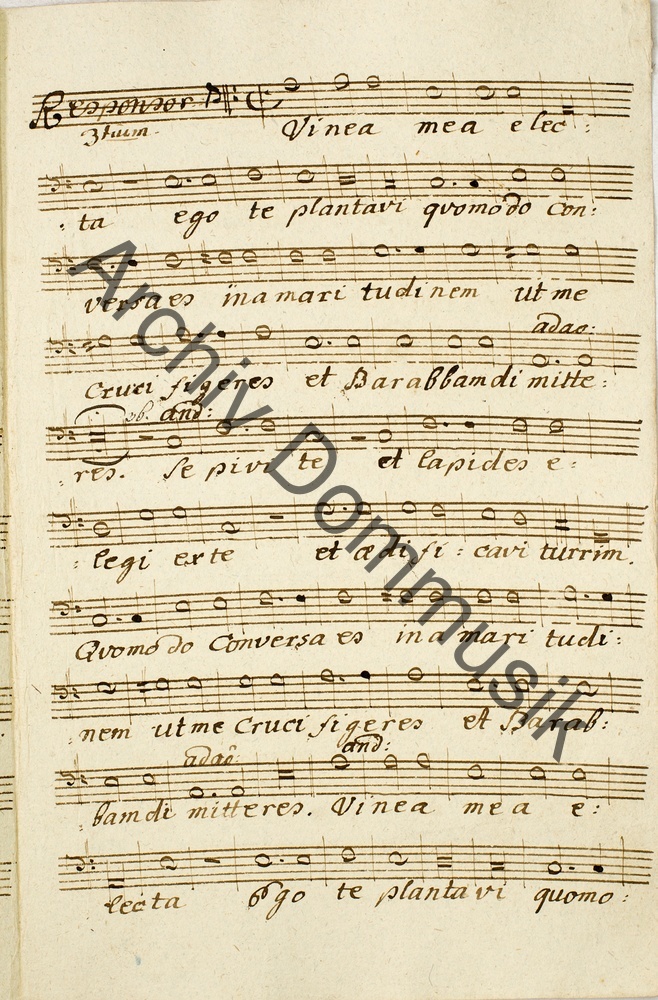 Responsor
3tium.
Vinea mea elec:
:ta ego te plantavi qvomodo Con:
versa es in amari tudinem ut me
adao:
Cruci figeres et Barabbam di mitte:
and:
:res. Se pivi te et lapides e:
:legi ex te et ædi fi: cavi turrim.
Qvomodo Conversa es in a mari tudi:
:nem ut me Cruci figeres et Barab:
adao: and:
:bam di mitteres. Vinea mea e:
lecta Ego te plantavi quomo:
Archiv Dommusik